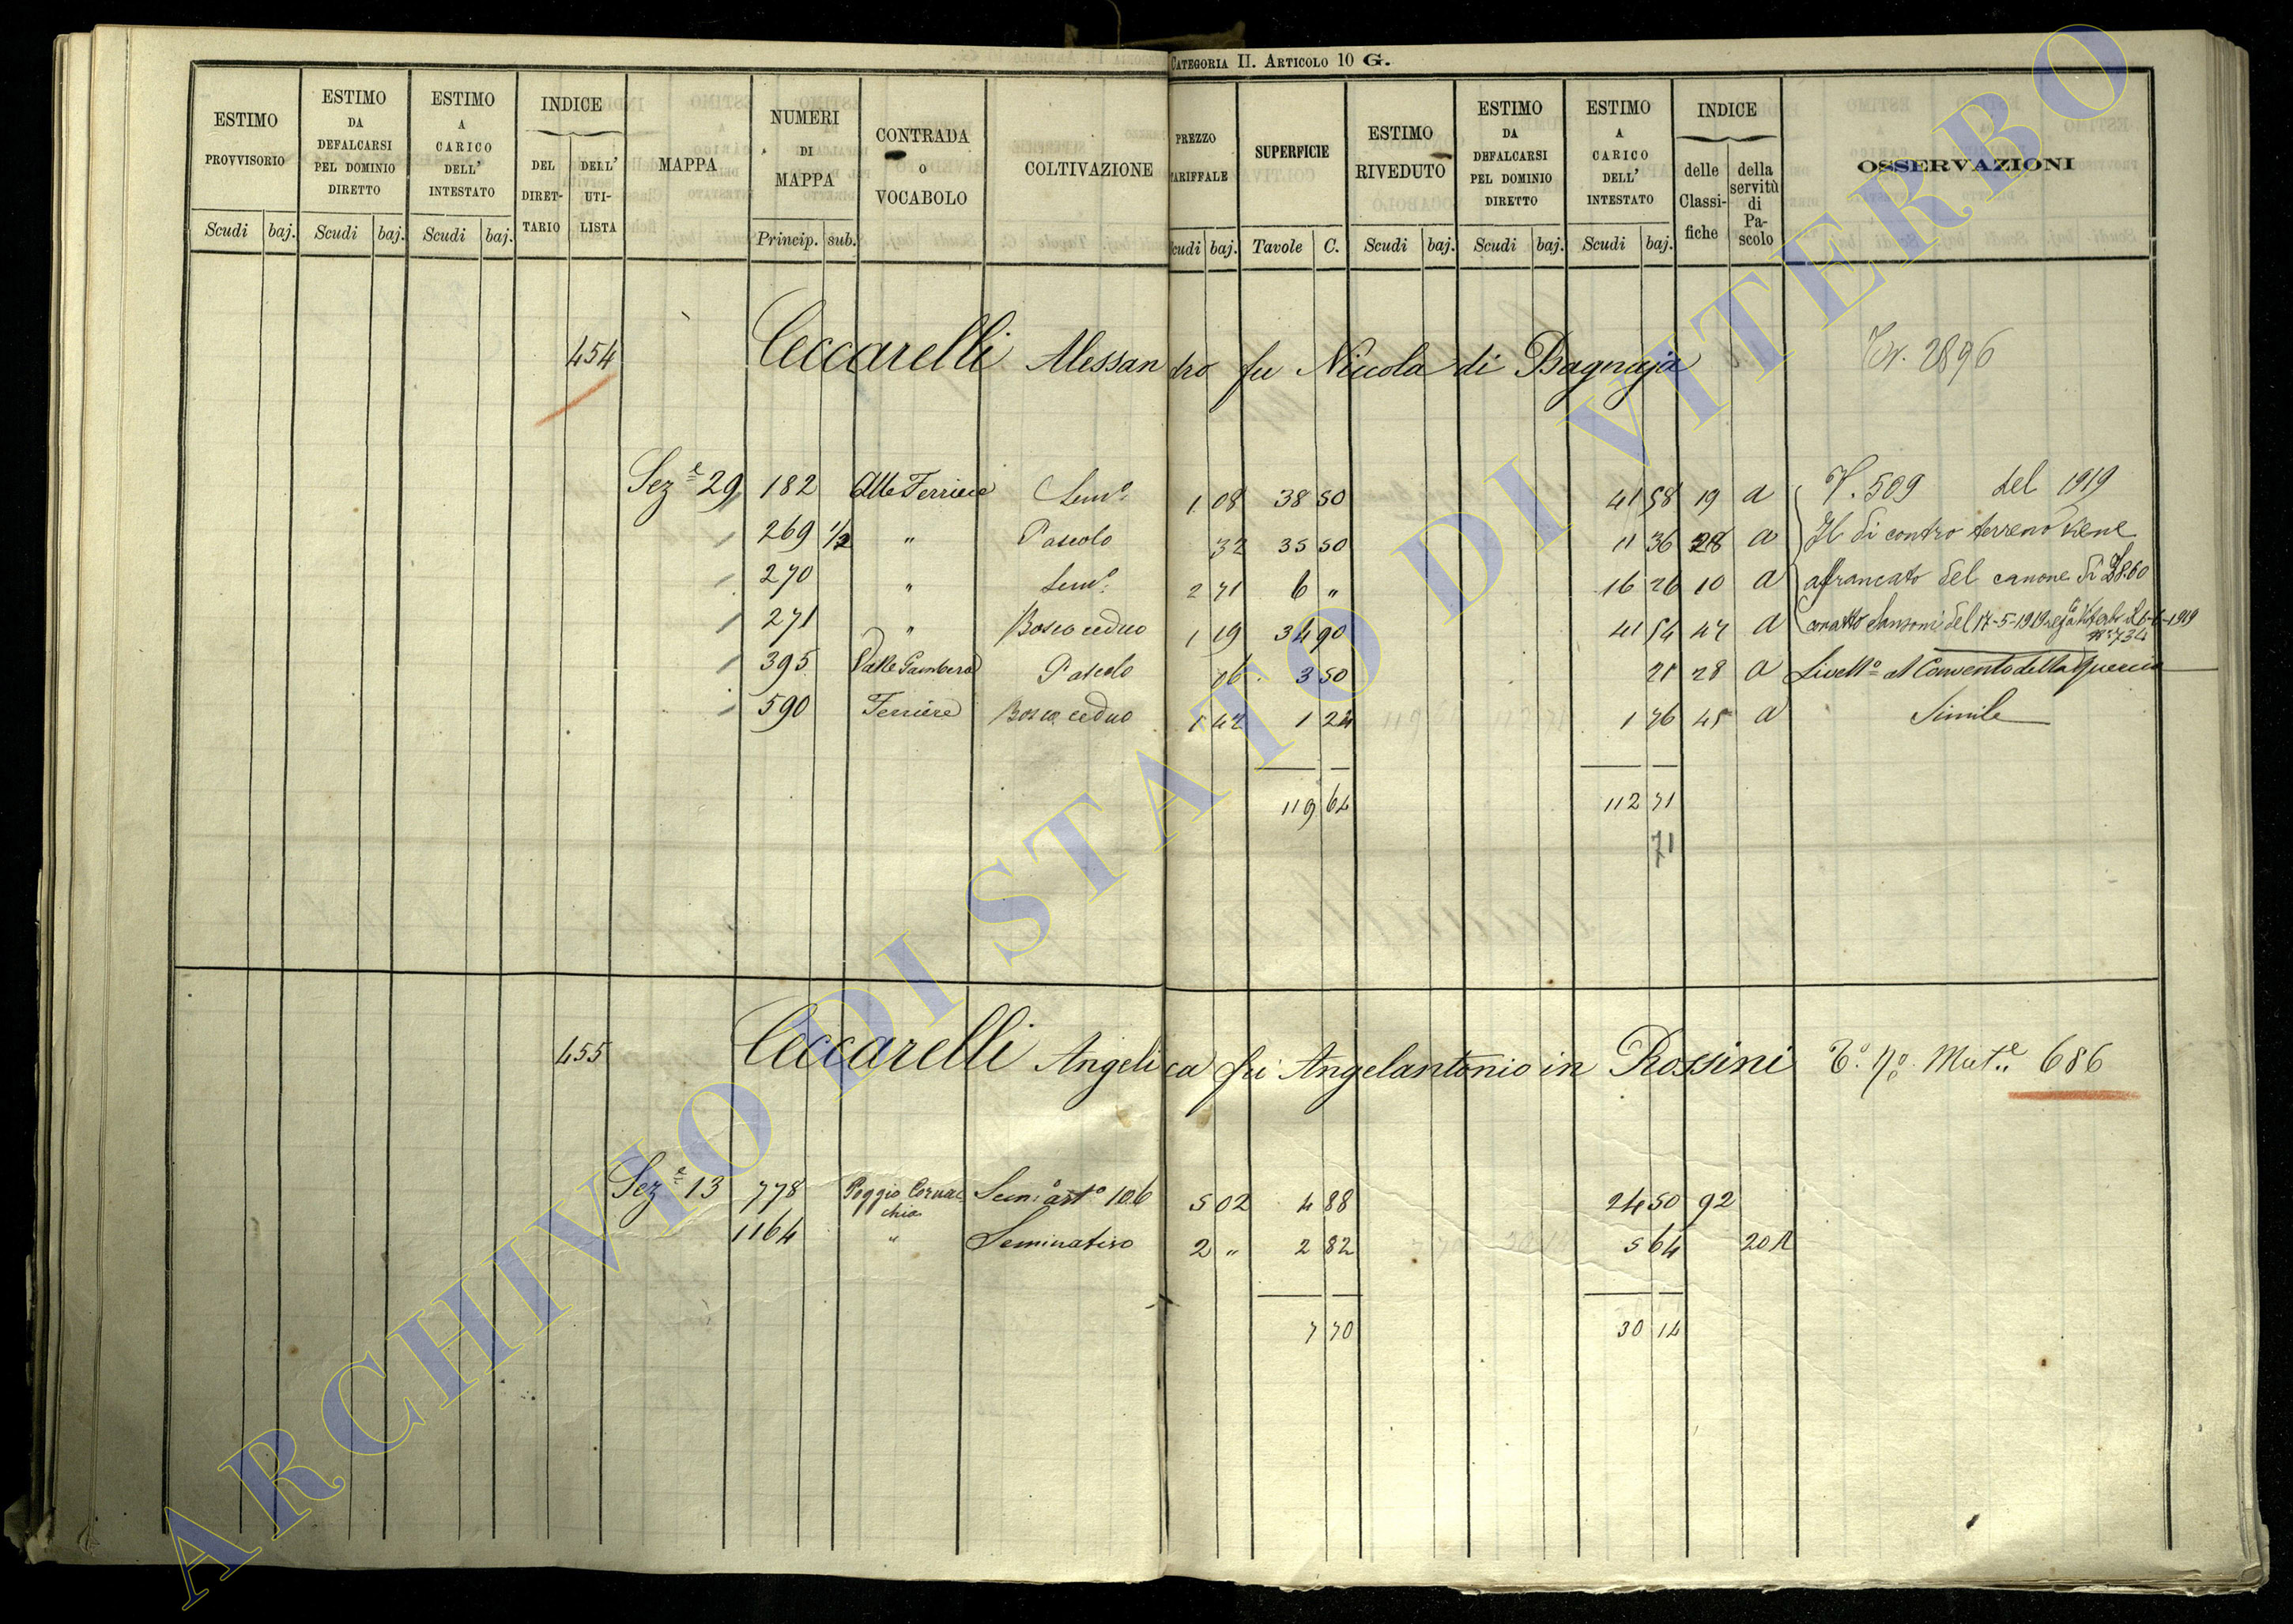 CATEGORIA II. ARTICOLO 10 G.
ESTIMO PROVVISORIO
ESTIMO DA DEFALCARSI PEL DOMINIO DIRETTO
ESTIMO A CARICO DELL' INTESTATO
INDICE
DEL DIRET-TARIO
DELL' UTI-LISTA
MAPPA
NUMERI DI MAPPA
CONTRADA O VOCABOLO
COLTIVAZIONE
PREZZO TARIFFALE
SUPERFICIE
ESTIMO RIVEDUTO
ESTIMO DA DEFALCARSI PEL DOMINIO DIRETTO
ESTIMO A CARICO DELL' INTESTATO
INDICE
delle Classi-fiche
della servitù di Pa-scolo
OSSERVAZIONI
Scudi baj. Scudi baj. Scudi baj. Princip. sub. Scudi baj. Tavole C. Scudi baj. Scudi baj. Scudi baj.
454 Ceccarelli Alessandro fu Niccola di Bagnaja 2896
Sez.e 29 182 Alle Ferriere Sem.o 1 08 38 50 41 58 19 a V. 509 del 1919
269 1/2 " Pascolo 32 35 50 11 36 28 a Il di contro terreno viene
270 " Sem.o 2 71 6 " 16 26 10 a affrancato del canone di
271 " Bosco ceduo 1 19 34 90 41 54 47 a Sansoni del 17-5-1919
395 Valle Gambero Pascolo 06 3 50 21 28 a Livell.o al Convento della Quercia
590 Ferriere Bosco ceduo 1 42 1 24 1 76 45 a Simile
119 64 112 71
71
455 Ceccarelli Angelica fu Angelantonio in Rossini T.o 7o Mut.e 686
Sez.e 13 778 Poggio Cornac Sem.o art.o 106 5 02 4 88 24 50 92
chia
1164 " Seminativo 2 " 2 82 5 64 20 A
7 70 30 14
ARCHIVIO DI STATO DI VITERBO